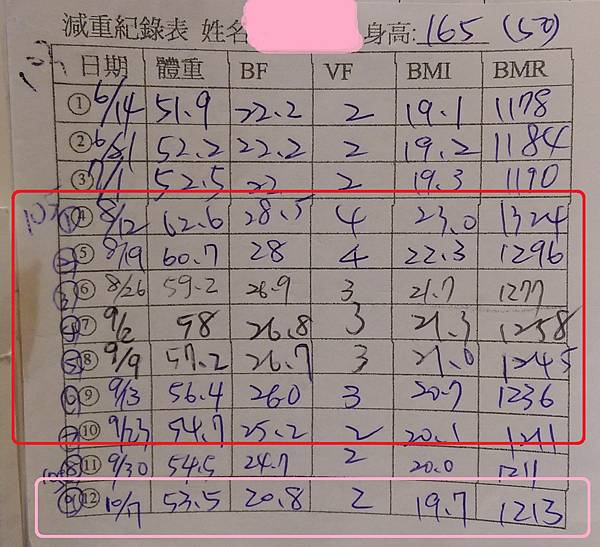 減重紀錄表 姓名 身高: 165 (50)
日期 體重 BF VF BMI BMR
① 6/14 51.9 22.2 2 19.1 1178
② 52.2 22.2 2 19.2 1184
③ 7/1 52.5 22 2 19.3 1190
① ④ 8/12 62.6 28.5 4 23.0 1324
② ⑤ 8/19 60.7 28 4 22.3 1296
③ ⑥ 8/26 59.2 26.9 3 21.7 1277
④ ⑦ 9/2 58 26.8 3 21.3 1258
⑤ ⑧ 9/9 57.2 26.7 3 21.0 1245
⑥ ⑨ 9/13 56.4 26.0 3 20.7 1236
⑦ ⑩ 9/23 54.7 25.2 2 20.1 1211
⑧ ⑪ 9/30 54.5 24.7 2 20.0 1211
⑨ ⑫ 10/17 53.5 20.8 2 19.7 1213